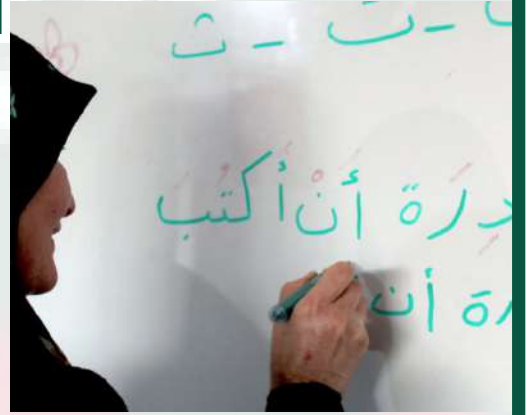 ث
درَة أَنْ أَكتُبَ
رة أن